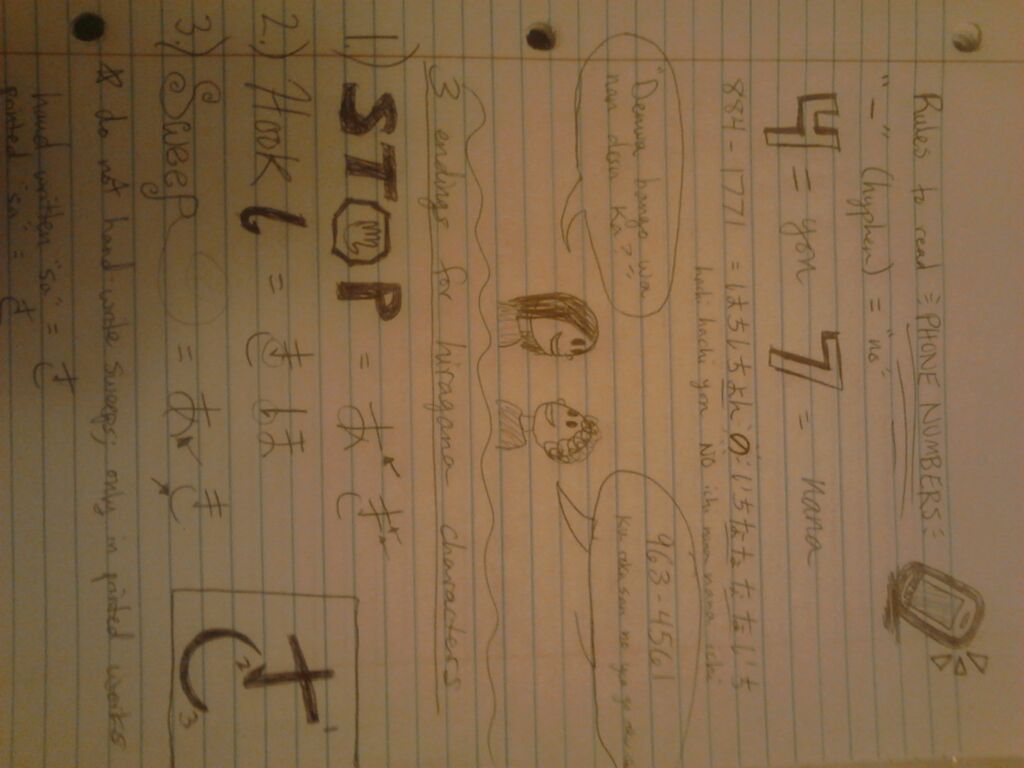 Rules to read :PHONE NUMBERS:
"-" (hyphen) = "no"
4 = yon 7 = nana
884-1771 = はちはちよんのいちななななないち
hachi hachi yon NO ichi nana nana ichi
"Denwa bango wa
nan desu ka?"
963-4561
3 endings for hiragana characters
1.) STOP = た き
2.) Hook = さ け
3.) Sweep = な さ
* do not hand write sweeps, only in printed works
hand written "sa" = さ
printed "sa" = さ
さ 1 2 3